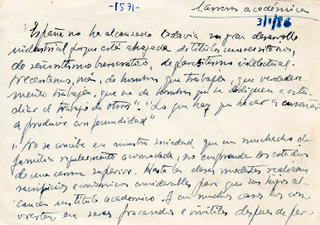 -1571-
Carreras académicas
3/1/86
"España no ha alcanzado todavía su gran desarrollo
industrial porque está ahogada de títulos universitarios,
de señoritismo burocrático, de parasitismo intelectual.
Precisamos, más, de hombres que trabajen, que verdadera-
mente trabajen, que no de hombres que se dediquen a
el trabajo de otros". "Lo que hay que hacer es
a producir con fecundidad"
"No se concibe en nuestra sociedad que un muchacho de
familia regularmente acomodada, no emprenda los estudios
de una carrera superior. Hasta las clases modestas realizan
sacrificios económicos considerables para que sus hijos al-
cancen un título académico. Y en muchos casos los con-
vierten en seres fracasados e inútiles después de